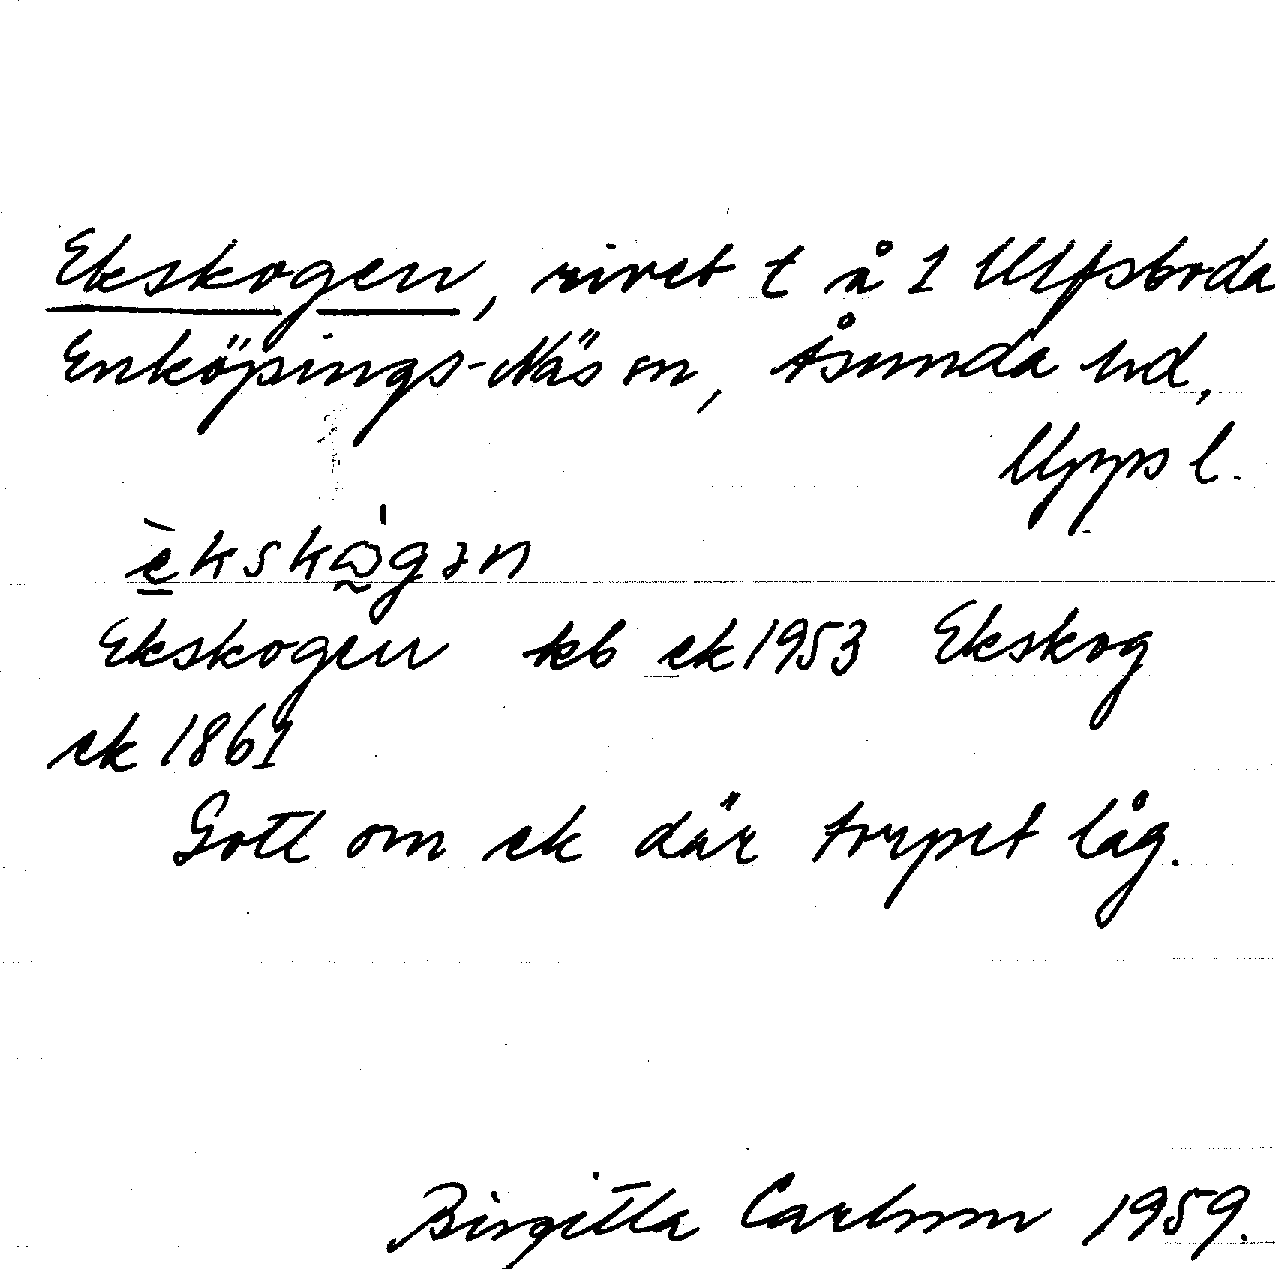 Ekskogen, rivet t å 1 Ulfsboda
Enköpings-Näs sn, Åsunda hd,
Uppsl.
èkskògən
Ekskogen kb ek 1953 Ekskog
ek 1861
Gott om ek där torpet låg.
Birgitta Carlsson 1959.